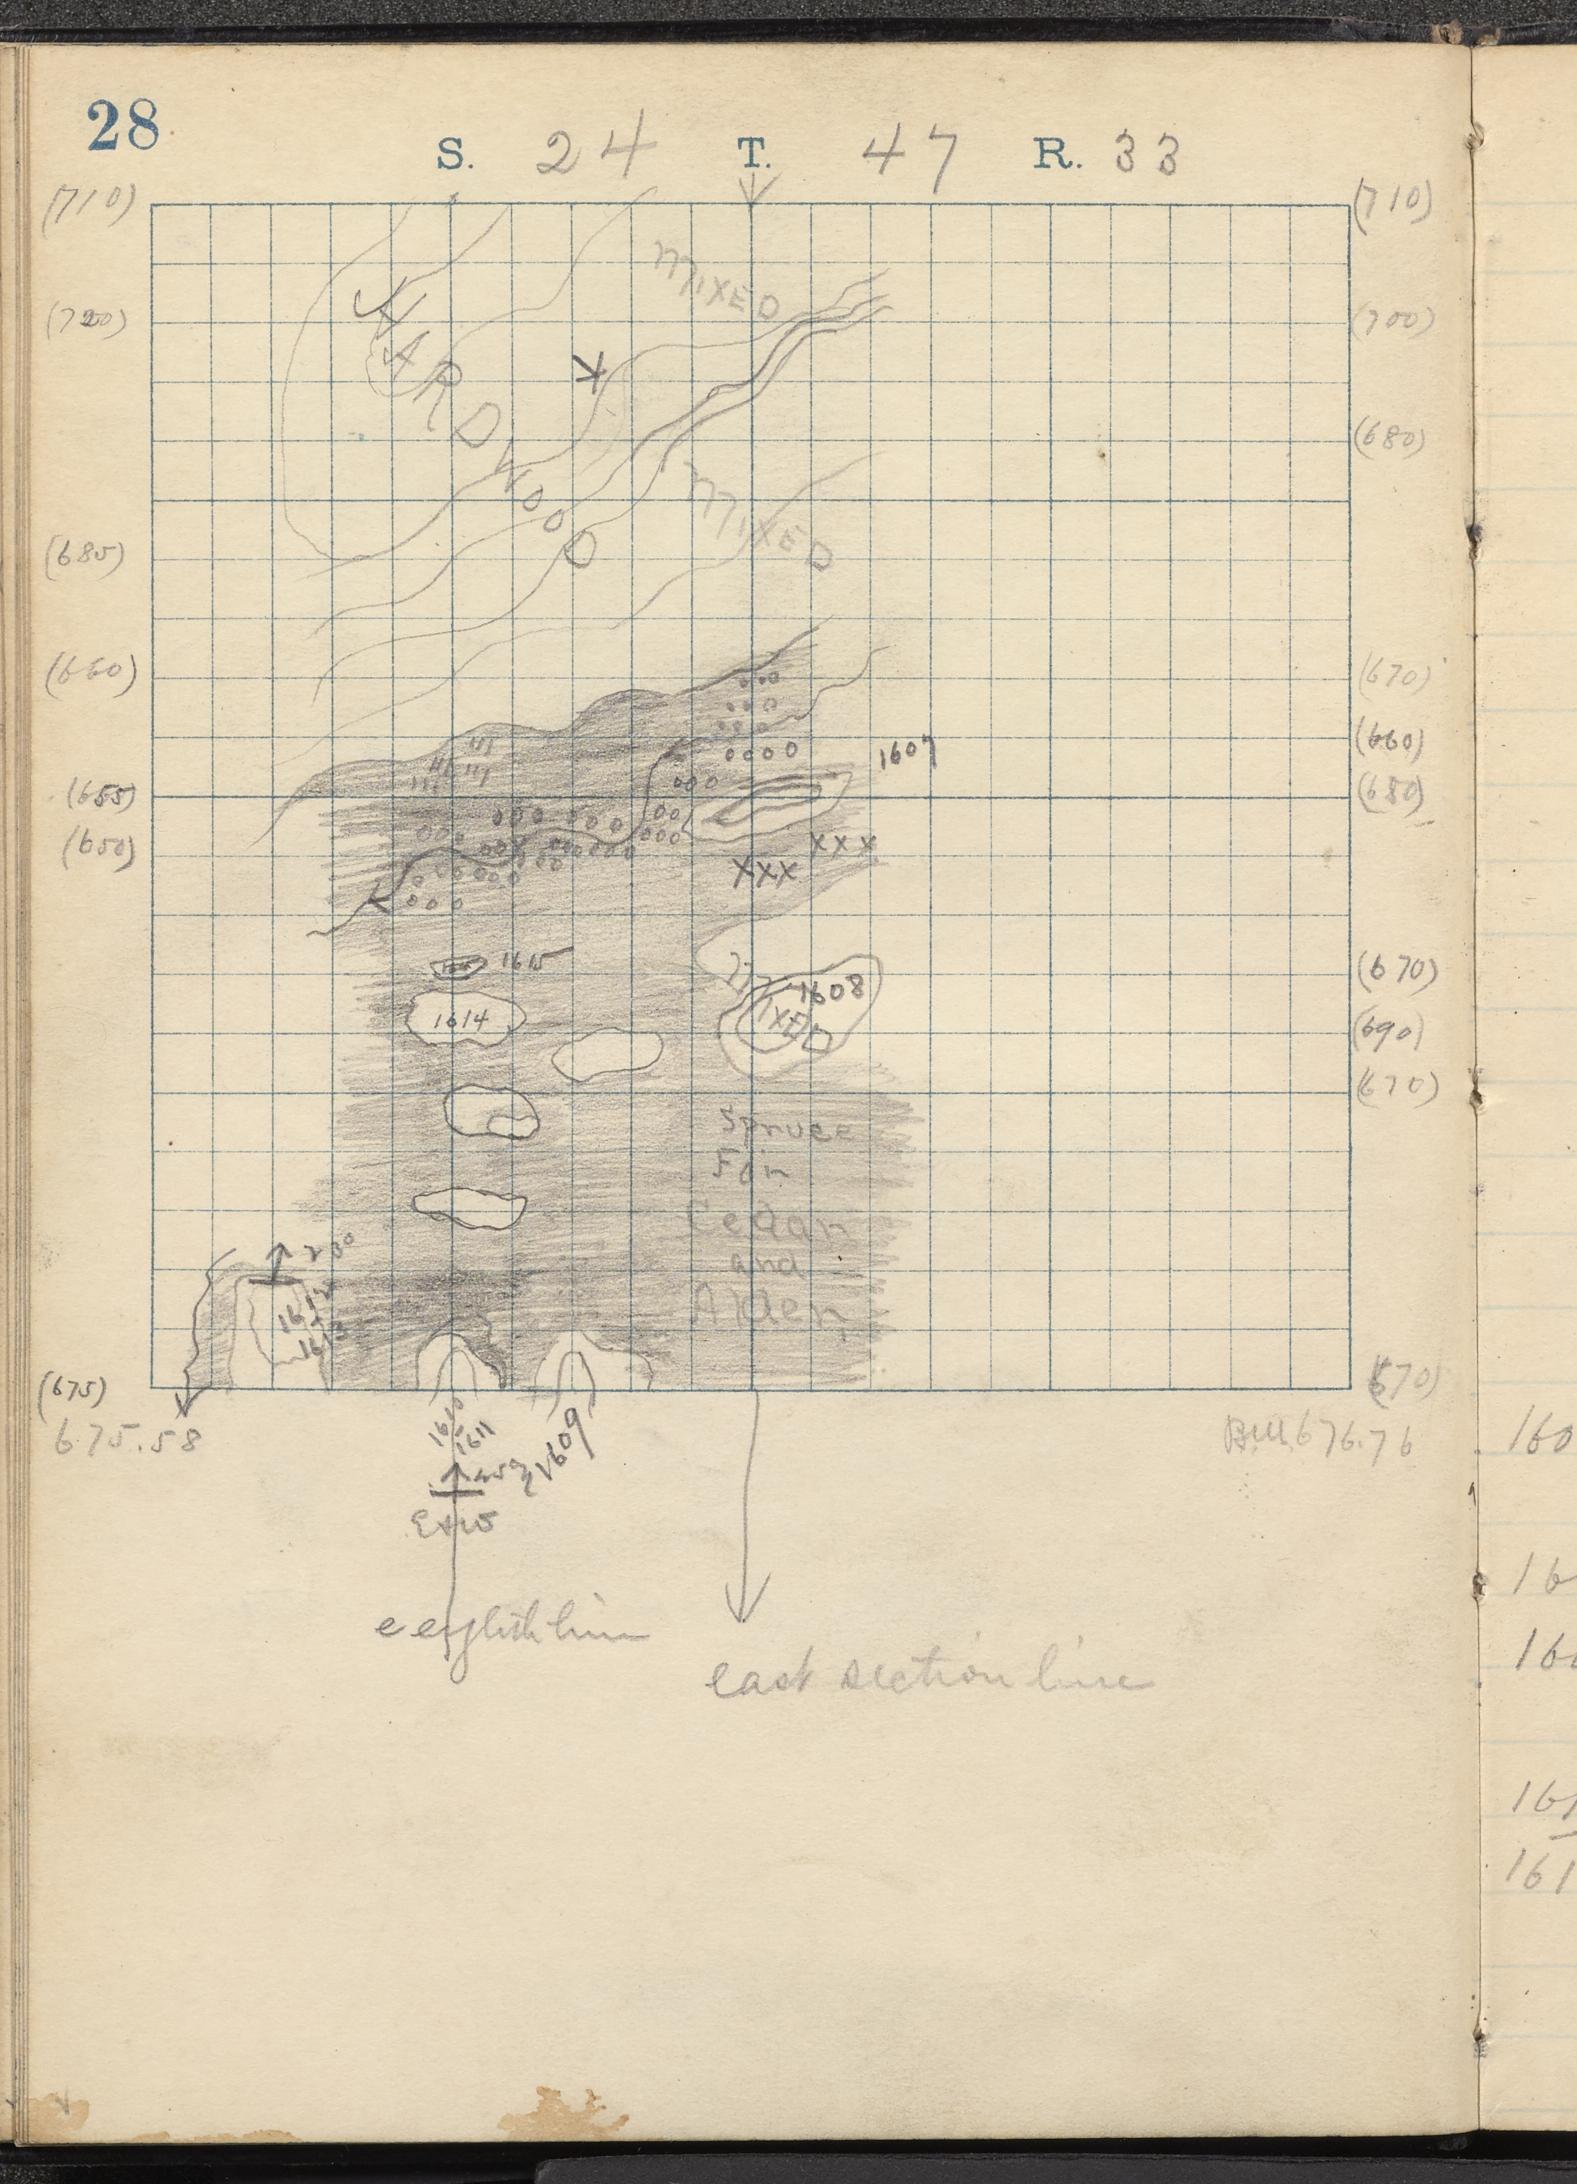 28
S. 24 T. 47 R. 33
(710) (710)
MIXED
(720) (700)
HARDWOOD
(680)
MIXED
(685)
(660) (670)
(660)
1607
(655) (680)
(650)
XXX
XXX
1615 (670)
1608
1614 MIXED (690)
(670)
Spruce
Fir
Cedar
and
Alder
230
1612
1613
(675) (670)
675.58 676.76
1610
1611
1609
E+W
e eighth line
east section line
160
16
16
161
161